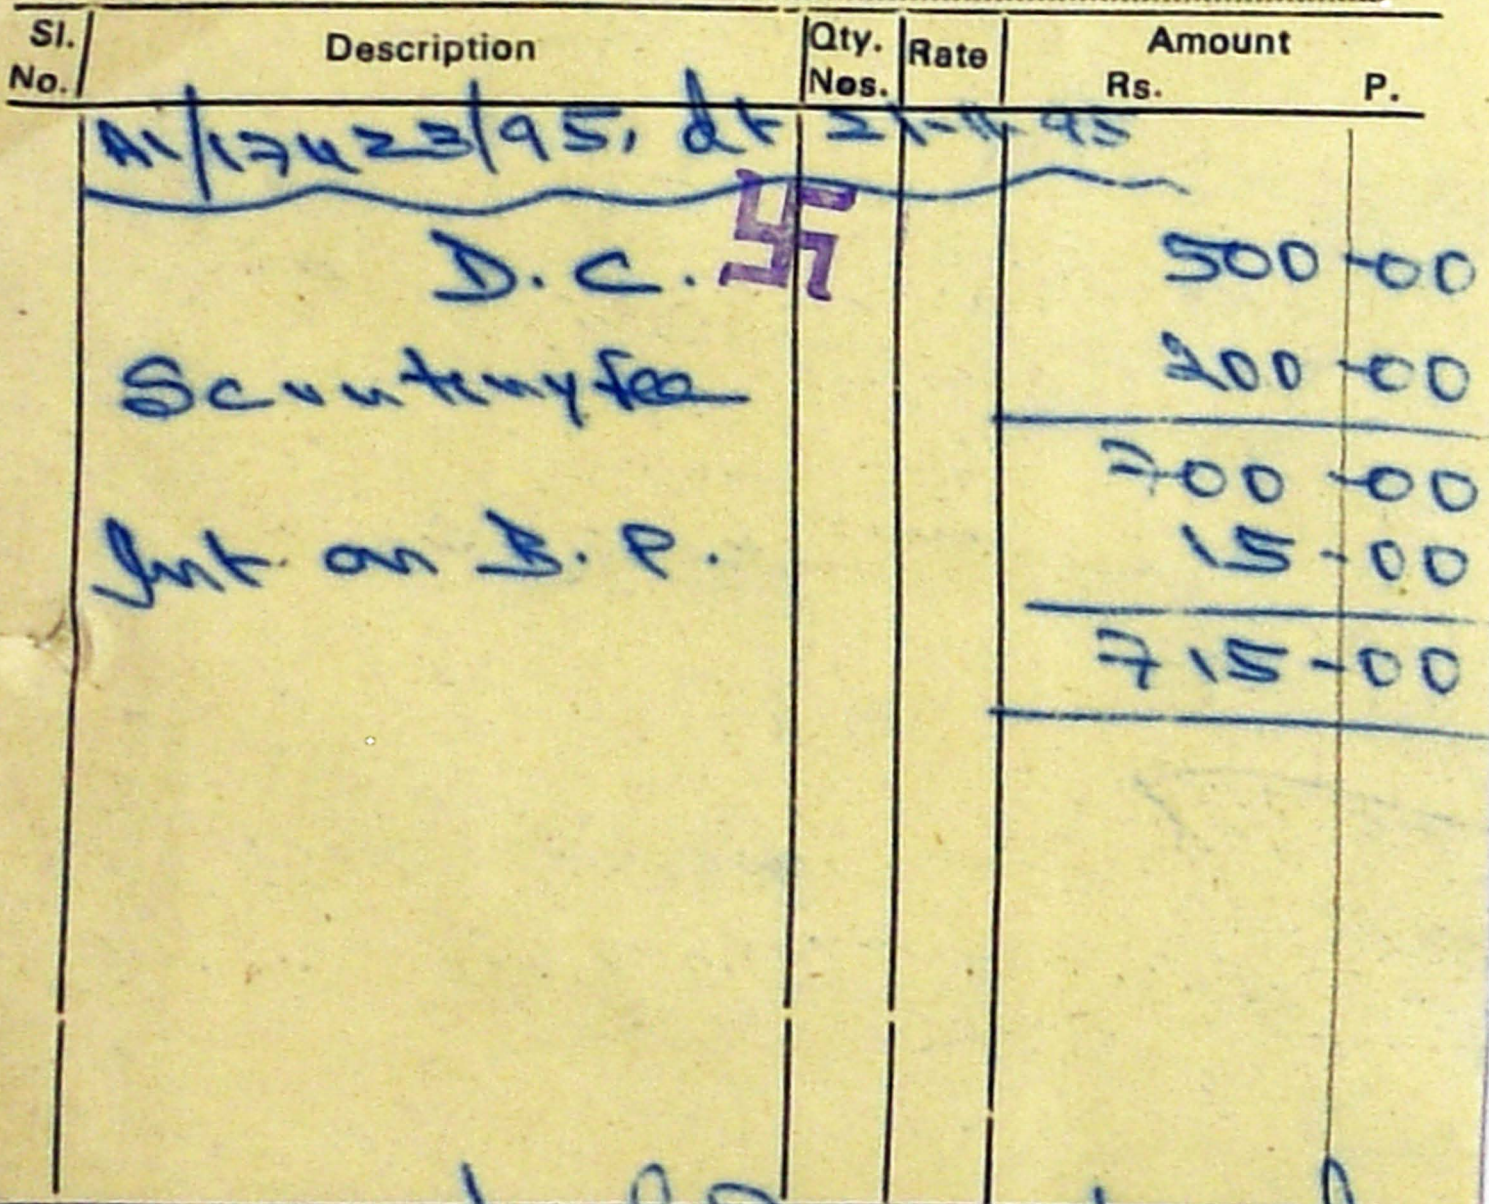 Sl. No. Description Qty. Nos. Rate Amount Rs. P.
A1/17423/95, dt 21-11-95
D.C. 500-00
Scrutiny fee 200-00
700-00
Int on B.P. 15-00
715-00